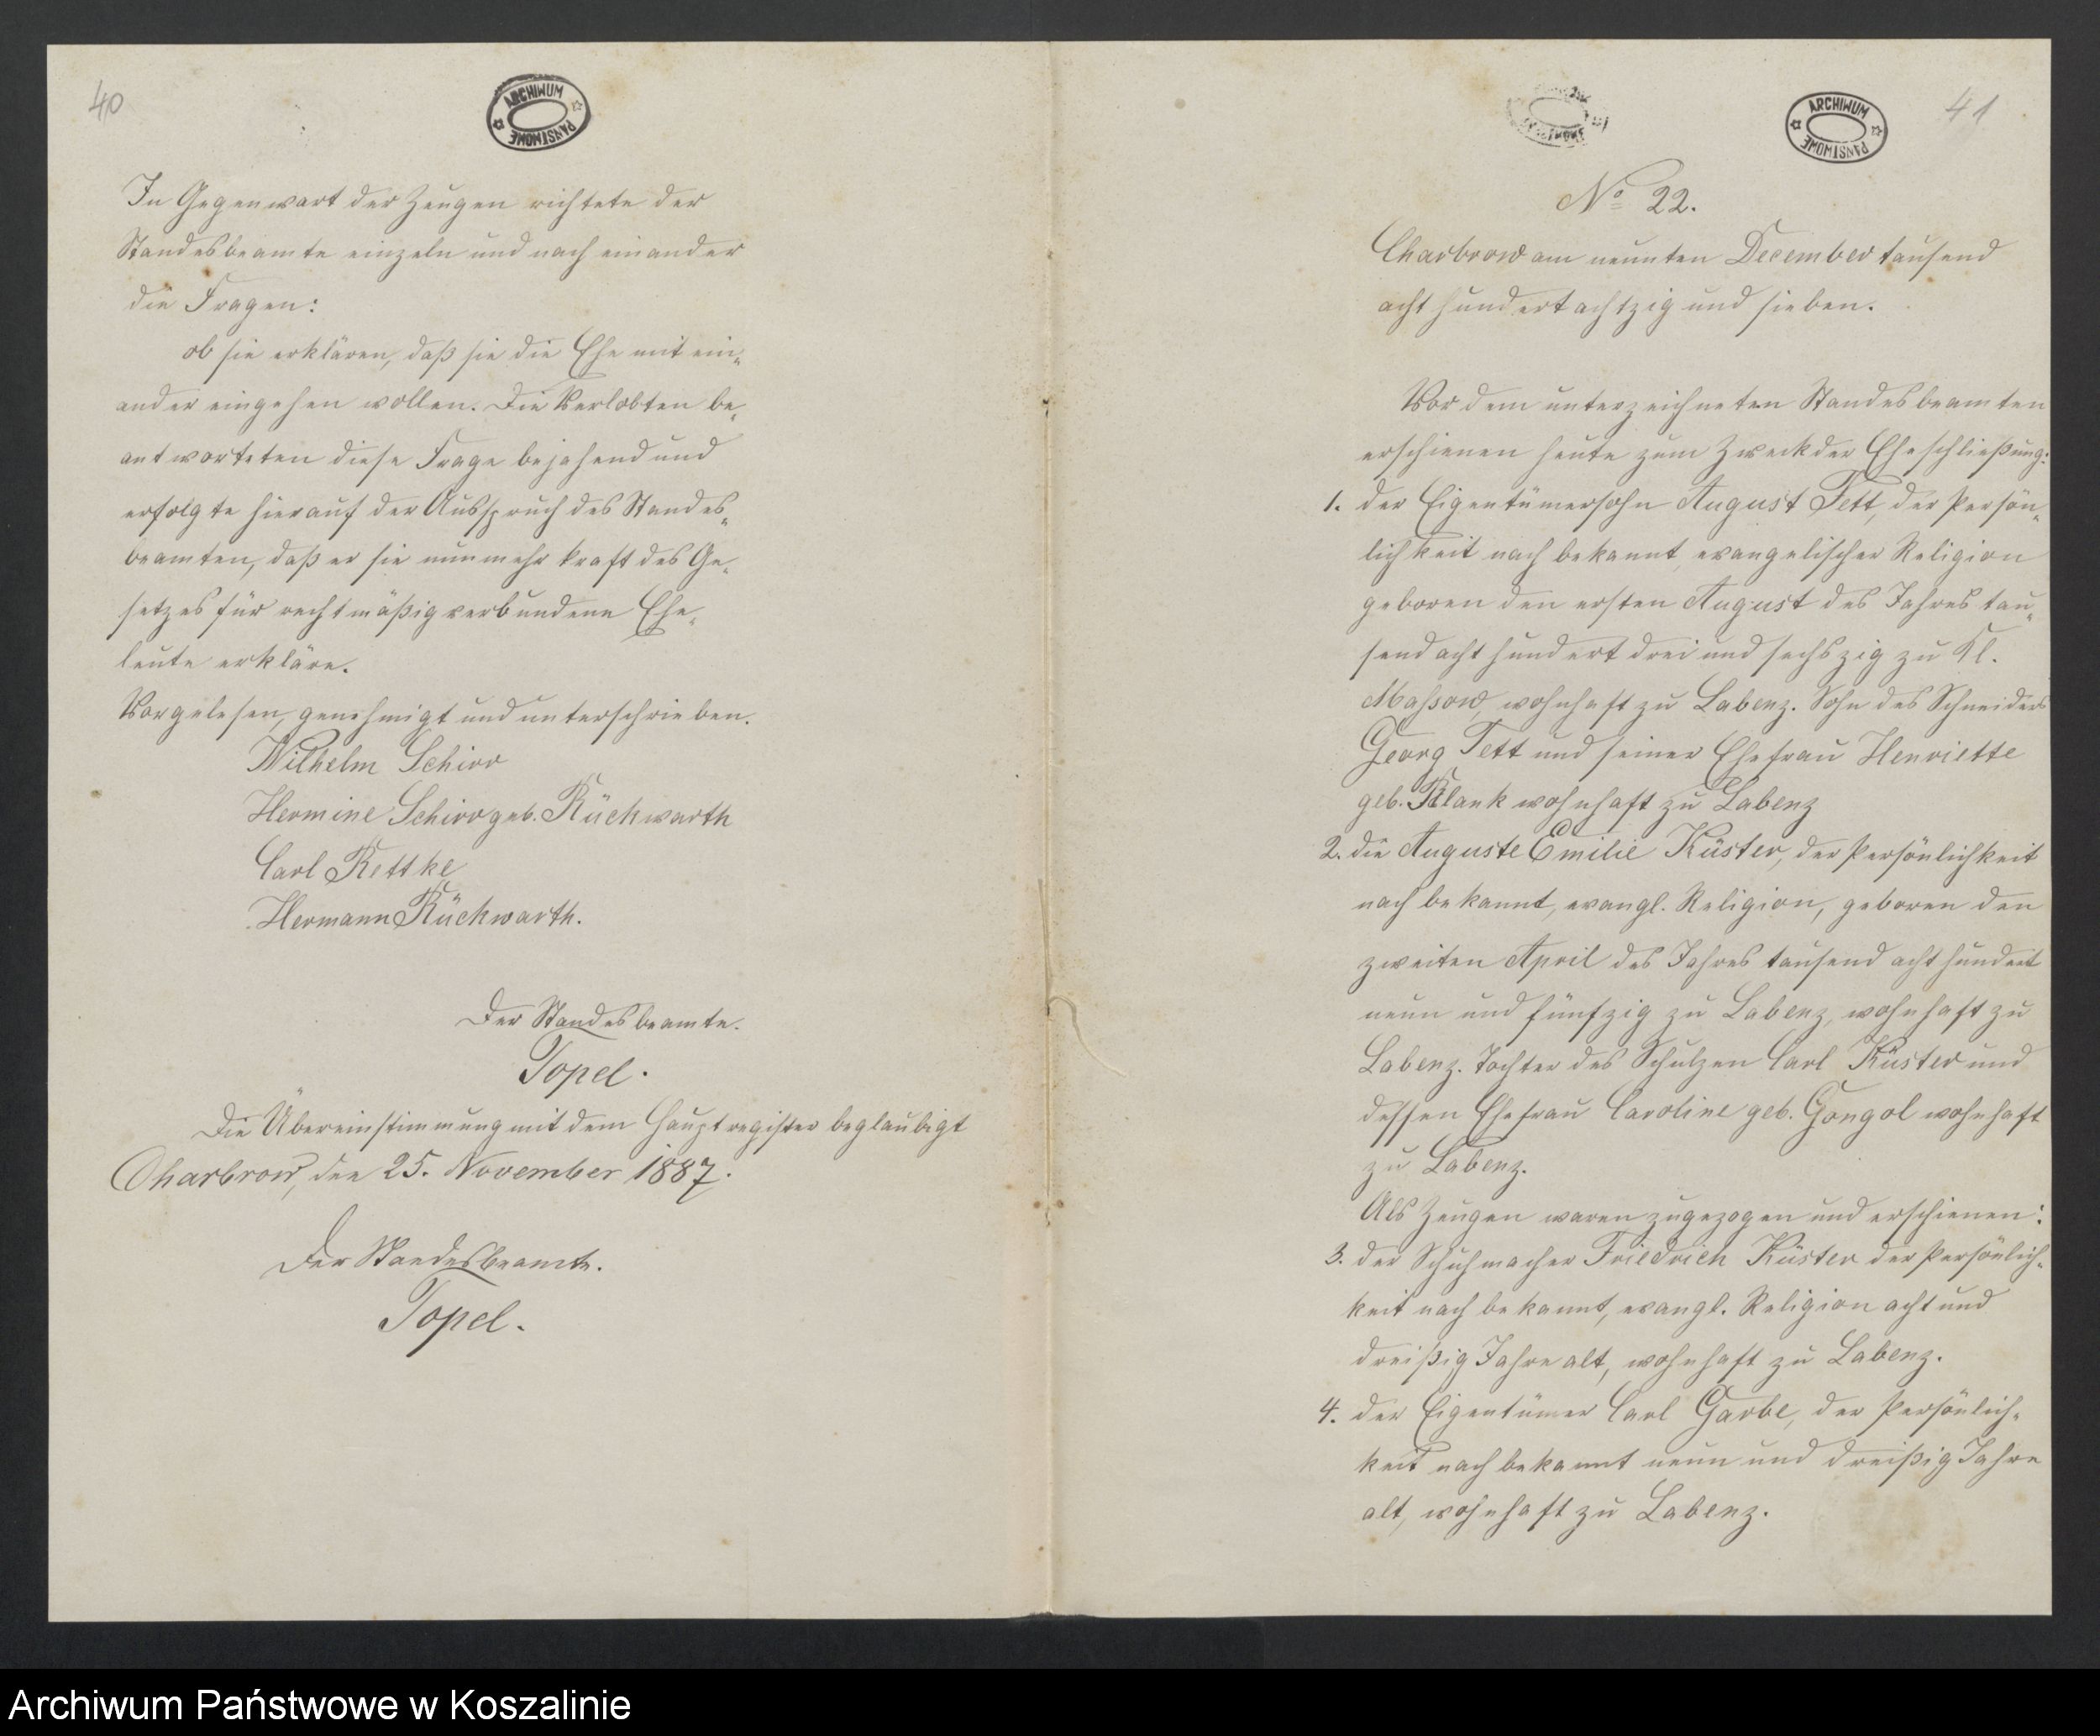 40
ARCHIWUM PAŃSTWOWE
In Gegenwart der Zeugen richtete der
Standesbeamte einzeln und nach einander
die Fragen:
ob sie erklären, daß sie die Ehe mit ein-
ander eingehen wollen. Die Verlobten be-
antworteten diese Frage bejahend und
erfolgte hierauf der Ausspruch des Standes-
beamten, daß er sie nunmehr kraft des Ge-
setzes für rechtmäßig verbundene Ehe-
leute erkläre.
Vorgelesen, genehmigt und unterschrieben.
Wilhelm Schirr
Hermine Schirr geb. Rückwarth
Carl Rettke
Hermann Rückwarth.
Der Standesbeamte.
Topel.
Die Übereinstimmung mit dem Hauptregister beglaubigt
Charbrow, den 25. November 1887.
Der Standesbeamte.
Topel.
ARCHIWUM PAŃSTWOWE
41
No 22.
Charbrow am neunten December tausend
acht hundert achtzig und sieben.
Vor dem unterzeichneten Standesbeamten
erschienen heute zum Zweck der Eheschließung:
1. der Eigentümersohn August Tett, der Persön-
lichkeit nach bekannt, evangelischer Religion
geboren den ersten August des Jahres tau-
send acht hundert drei und sechszig zu Kl.
Maßow, wohnhaft zu Labenz. Sohn des Schneiders
Georg Tett und seiner Ehefrau Henriette
geb. Klank wohnhaft zu Labenz
2. die Auguste Emilie Küster, der Persönlichkeit
nach bekannt, evangl. Religion, geboren den
zweiten April des Jahres tausend acht hundert
neun und fünfzig zu Labenz, wohnhaft zu
Labenz. Tochter des Schulzen Carl Küster und
dessen Ehefrau Caroline geb. Gongol wohnhaft
zu Labenz.
Als Zeugen waren zugezogen und erschienen:
3. der Schuhmacher Friedrich Küster der Persönlich-
keit nach bekannt, evangl. Religion acht und
dreißig Jahre alt, wohnhaft zu Labenz.
4. der Eigentümer Carl Garbe, der Persönlich-
keit nach bekannt neun und dreißig Jahre
alt, wohnhaft zu Labenz.
Archiwum Państwowe w Koszalinie